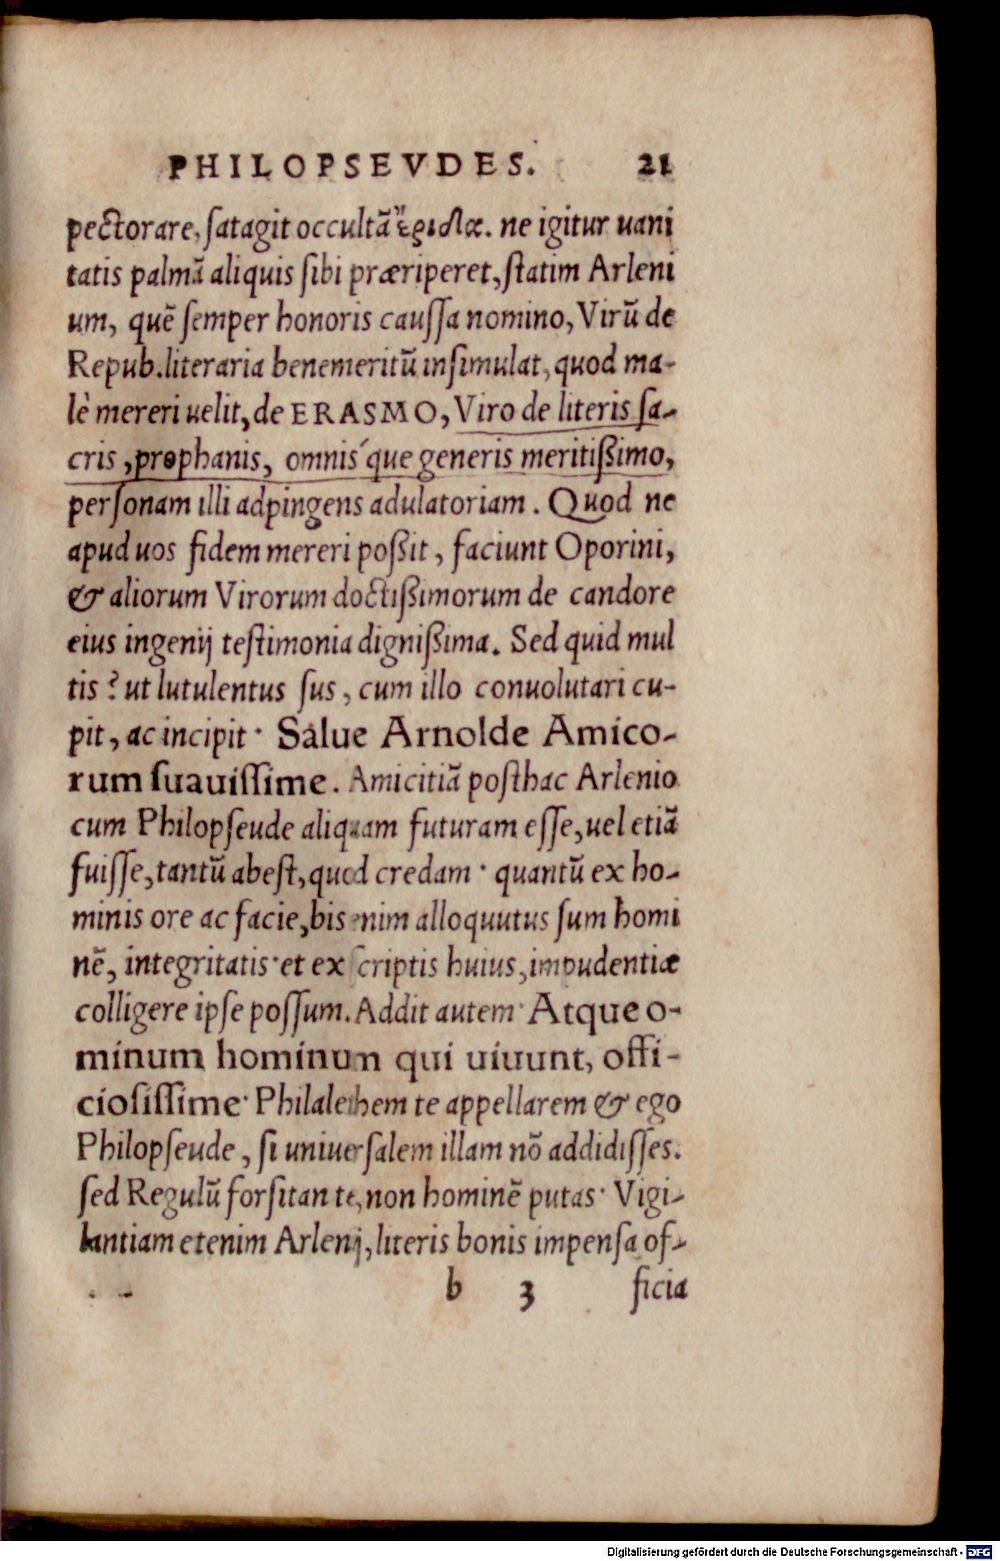 PHILOPSEVDES. 21
pectorare, ſatagit occultā ἔριδα. ne igitur uani
tatis palmā aliquis ſibi præriperet, ſtatim Arleni
um, quē ſemper honoris cauſſa nomino, Virū de
Repub. literaria benemeritū inſimulat, quod ma-
lè mereri uelit, de ERASMO, Viro de literis ſa-
cris, prophanis, omnis´que generis meritißimo,
perſonam illi adpingens adulatoriam. Quod ne
apud uos fidem mereri poßit, faciunt Oporini,
& aliorum Virorum doctißimorum de candore
eius ingenij teſtimonia dignißima. Sed quid mul
tis? ut lutulentus ſus, cum illo conuolutari cu-
pit, ac incipit· Salue Arnolde Amico-
rum ſuauiſſime. Amicitiā poſthac Arlenio
cum Philopſeude aliquam futuram eſſe, uel etiā
fuiſſe, tantū abeſt, quod credam· quantū ex ho-
minis ore ac facie, bis enim alloquutus ſum homi
nē, integritatis· et ex ſcriptis huius, impudentiæ
colligere ipſe poſſum. Addit autem· Atque o-
minum hominum qui uiuunt, offi-
cioſiſſime· Philalethem te appellarem & ego
Philopſeude, ſi uniuerſalem illam nō addidiſſes.
ſed Regulū forſitan te, non hominē putas· Vigi-
lantiam etenim Arlenij, literis bonis impenſa of-
b 3 ficia
Digitalisierung gefördert durch die Deutsche Forschungsgemeinschaft - DFG